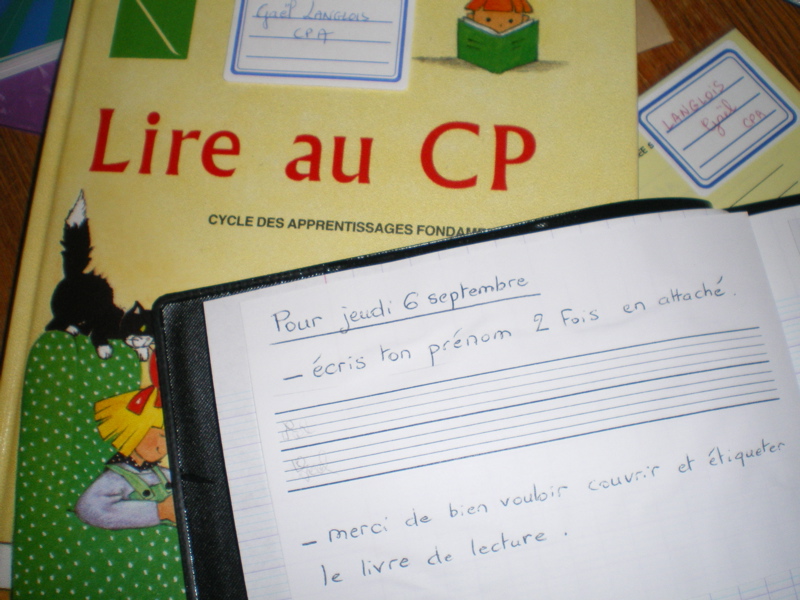 Gaël LANGLOIS
CPA
LANGLOIS
Gaël
CPA
Lire au CP
CYCLE DES APPRENTISSAGES
Pour jeudi 6 septembre
- écris ton prénom 2 fois en attaché.
- merci de bien vouloir couvrir et étiqueter
le livre de lecture.